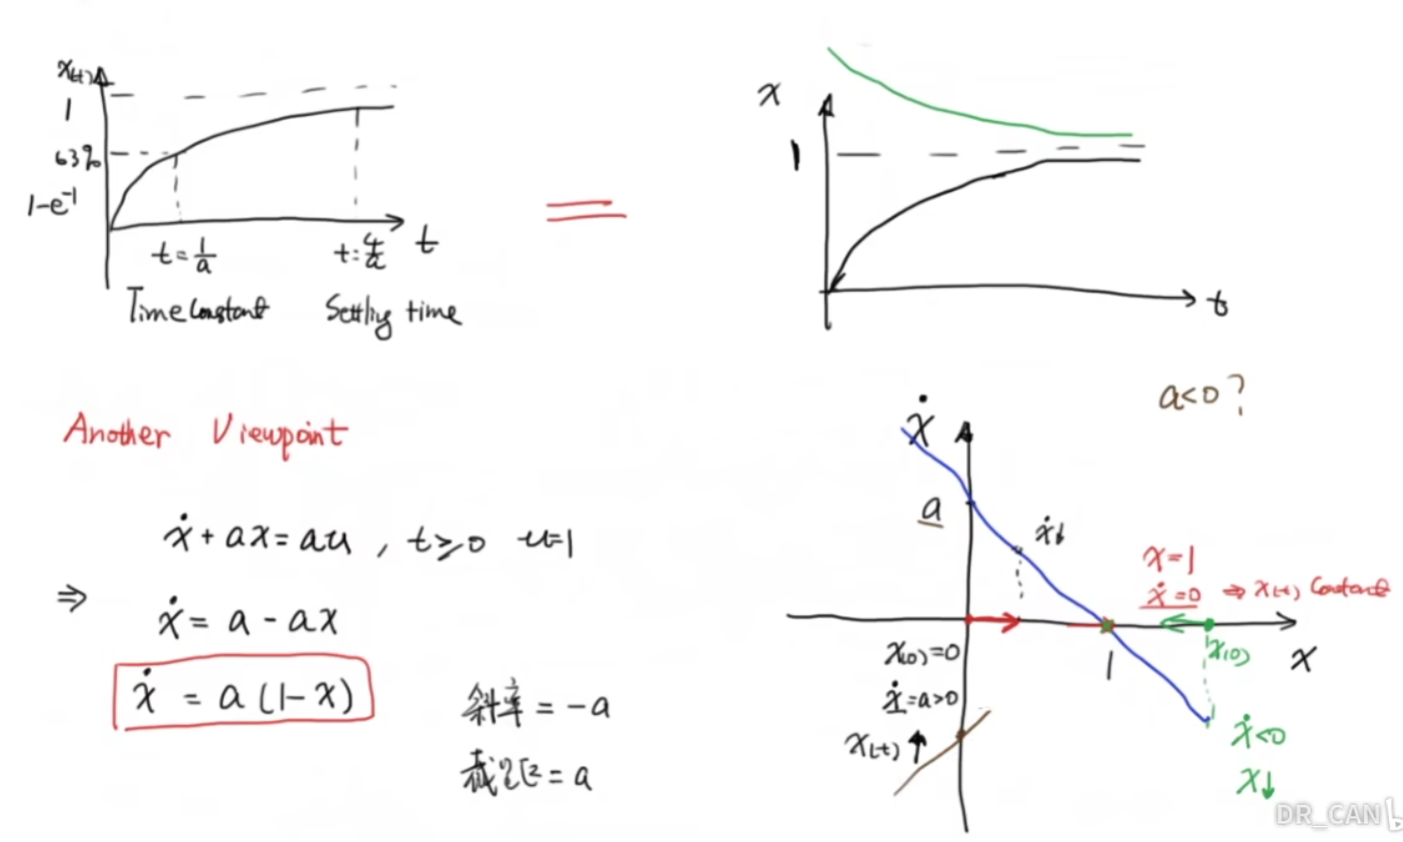 x(t)
1
63%
1-e⁻¹
t=1/a
t=4/a
t
Time Constant
Settling time
=
x
1
t
Another Viewpoint
ẋ + ax = au , t≥0 u=1
⇒ ẋ = a - ax
ẋ = a (1-x)
斜率 = -a
截距 = a
a<0?
ẋ
a
ẋ↓
x=1
ẋ=0 ⇒ x(t) Constant
x(0)=0
1
x(0)
x
ẋ=a>0
x(t)↑
ẋ<0
x↓
DR_CAN